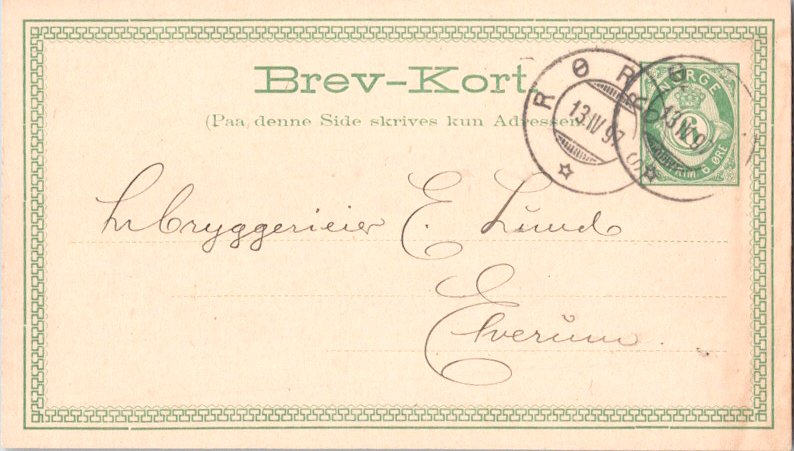 Brev-Kort.
(Paa denne Side skrives kun Adressen)
RØROS
13 IV 97
RØROS
13 IV 97
NORGE
6
FRIM 6 ØRE
Hr Bryggerieier E. Lund
Elverum.